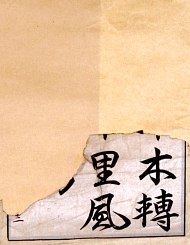 木轉
里風
三